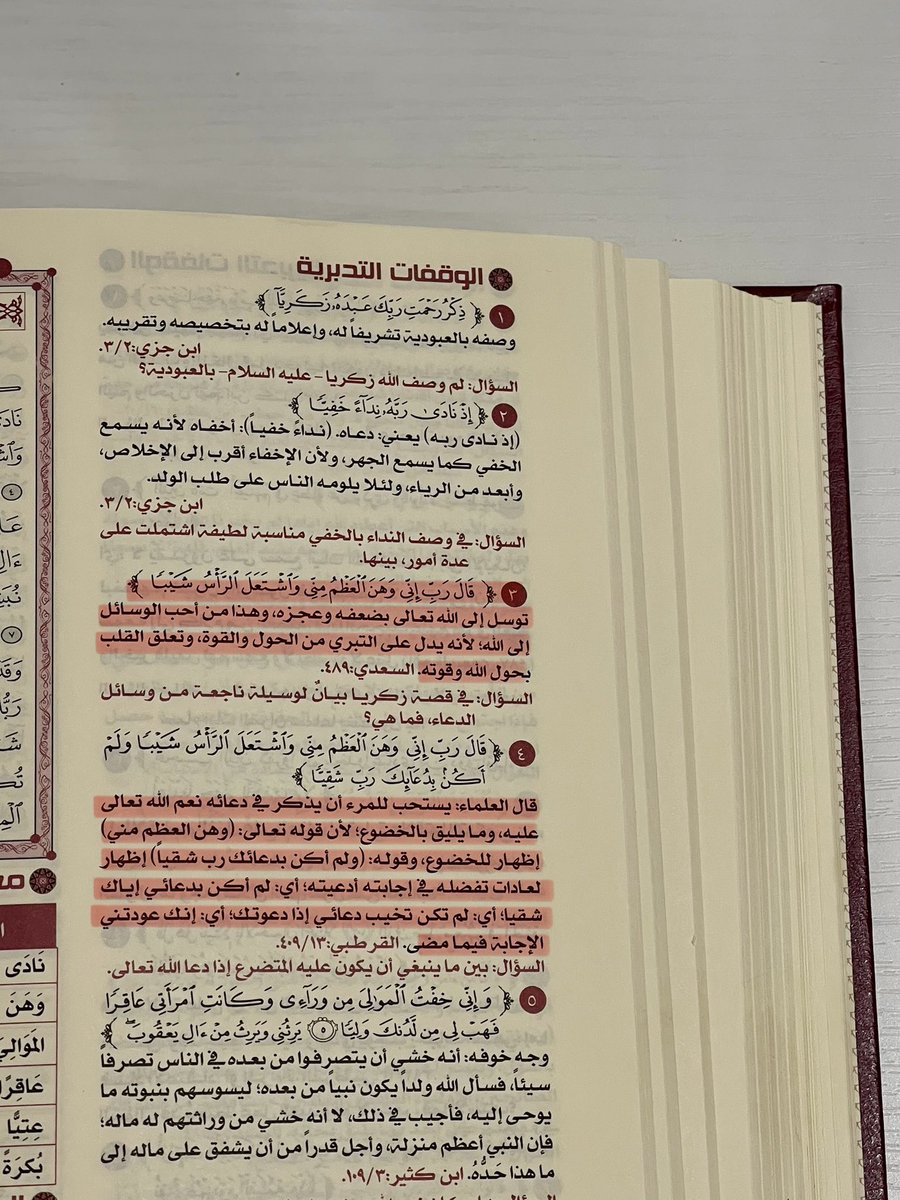 الوقفات التدبرية
١ ﴿ ذِكْرُ رَحْمَتِ رَبِّكَ عَبْدَهُۥ زَكَرِيَّآ ﴾
وصفه بالعبودية تشريفاً له، وإعلاماً له بتخصيصه وتقريبه.
ابن جزي:٣/٢.
السؤال: لم وصف الله زكريا- عليه السلام- بالعبودية؟
٢ ﴿ إِذْ نَادَىٰ رَبَّهُۥ نِدَآءً خَفِيًّا ﴾
(إذ نادى ربه) يعني: دعاه. (نداءً خفياً): أخفاه لأنه يسمع
الخفي كما يسمع الجهر، ولأن الإخفاء أقرب إلى الإخلاص،
وأبعد من الرياء، ولئلا يلومه الناس على طلب الولد.
ابن جزي:٣/٢.
السؤال: في وصف النداء بالخفي مناسبة لطيفة اشتملت على
عدة أمور، بينها.
٣ ﴿ قَالَ رَبِّ إِنِّى وَهَنَ ٱلْعَظْمُ مِنِّى وَٱشْتَعَلَ ٱلرَّأْسُ شَيْبًا ﴾
توسل إلى الله تعالى بضعفه وعجزه، وهذا من أحب الوسائل
إلى الله؛ لأنه يدل على التبري من الحول والقوة، وتعلق القلب
بحول الله وقوته. السعدي:٤٨٩.
السؤال: في قصة زكريا بيانٌ لوسيلة ناجعة من وسائل
الدعاء، فما هي؟
٤ ﴿ قَالَ رَبِّ إِنِّى وَهَنَ ٱلْعَظْمُ مِنِّى وَٱشْتَعَلَ ٱلرَّأْسُ شَيْبًا وَلَمْ
أَكُنۢ بِدُعَآئِكَ رَبِّ شَقِيًّا ﴾
قال العلماء: يستحب للمرء أن يذكر في دعائه نعم الله تعالى
عليه، وما يليق بالخضوع؛ لأن قوله تعالى: (وهن العظم مني)
إظهار للخضوع، وقوله: (ولم أكن بدعائك رب شقياً) إظهار
لعادات تفضله في إجابته أدعيته؛ أي: لم أكن بدعائي إياك
شقيا؛ أي: لم تكن تخيب دعائي إذا دعوتك؛ أي: إنك عودتني
الإجابة فيما مضى. القرطبي:٤٠٩/١٣.
السؤال: بين ما ينبغي أن يكون عليه المتضرع إذا دعا الله تعالى.
٥ ﴿ وَإِنِّى خِفْتُ ٱلْمَوَٰلِىَ مِن وَرَآءِى وَكَانَتِ ٱمْرَأَتِى عَاقِرًا
فَهَبْ لِى مِن لَّدُنكَ وَلِيًّا ۝٥ يَرِثُنِى وَيَرِثُ مِنْ ءَالِ يَعْقُوبَ ۖ ﴾
وجه خوفه: أنه خشي أن يتصرفوا من بعده في الناس تصرفاً
سيئاً، فسأل الله ولداً يكون نبياً من بعده؛ ليسوسهم بنبوته ما
يوحى إليه، فأجيب في ذلك، لا أنه خشي من وراثتهم له ماله؛
فإن النبي أعظم منزلة، وأجل قدراً من أن يشفق على ماله إلى
ما هذا حَدُّهُ. ابن كثير:١٠٩/٣.
نَادَى
وَهَنَ
المَوَالِيَ
عَاقِرًا
عِتِيًّا
بُكرَةً